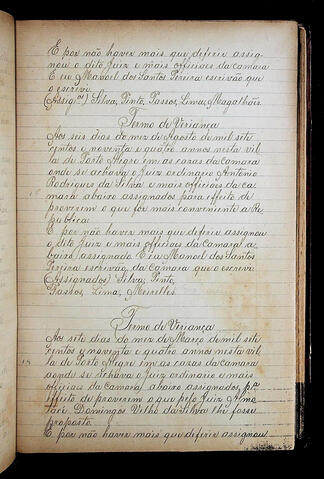 E por não haver mais que deferir assig-
nou o dito Juiz e mais officiaes da camara
E eu Manoel dos Santos Pereira escrivão que
o escrevi.
(Assig.os) Silva, Pinto, Passos, Lima, Magalhães.
Termo de Veriança
Aos seis dias do mez de Agosto de mil sete
centos e noventa e quatro annos nesta vil-
la de Porto Alegre em as cazas da camara
onde se achava o Juiz ordinario Antonio
Rodrigues da Silva e mais officiaes da ca-
mara abaixo assignados para effeito de
proverem o que for mais conveniente a Re-
publica.
E por não haver mais que deferir assignou
o dito Juiz e mais officiaes da Camara a-
baixo assignado E eu Manoel dos Santos
Pereira escrivão da camara que o escrevi
(Assignados) Silva, Pinto,
Passos, Lima, Meirelles.
Termo de Veriança
Aos sete dias do mez de Março de mil sete
centos e noventa e quatro annos nesta vil-
la de Porto Alegre em as cazas da camara
onde se achava o Juiz ordinario e mais
officiaes da camara abaixo assignados, p.a
effeito de proverem o que pelo Juiz Almo-
tacé Domingos Velho da Silva lhe fosse
proposto.
E por não haver mais que deferir assignou